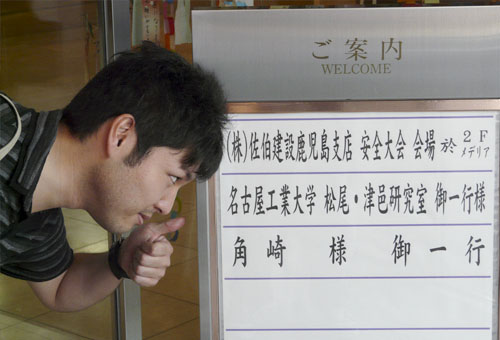 ご案内
WELCOME
(株)佐伯建設鹿児島支店 安全大会 会場 於 2F メデリア
名古屋工業大学 松尾・津邑研究室 御一行様
角崎様御一行